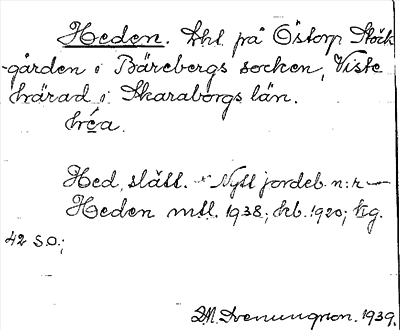 Heden. Shl. på Östorp Stöck-
gården i Bärebergs socken, Viste
härad i Skaraborgs län.
héa.
Hed, slätt. * Nytt jordeb. n:r —
Heden mtl. 1938; kb. 1920; hg.
42 S.O.;
M. Svenungson. 1939.